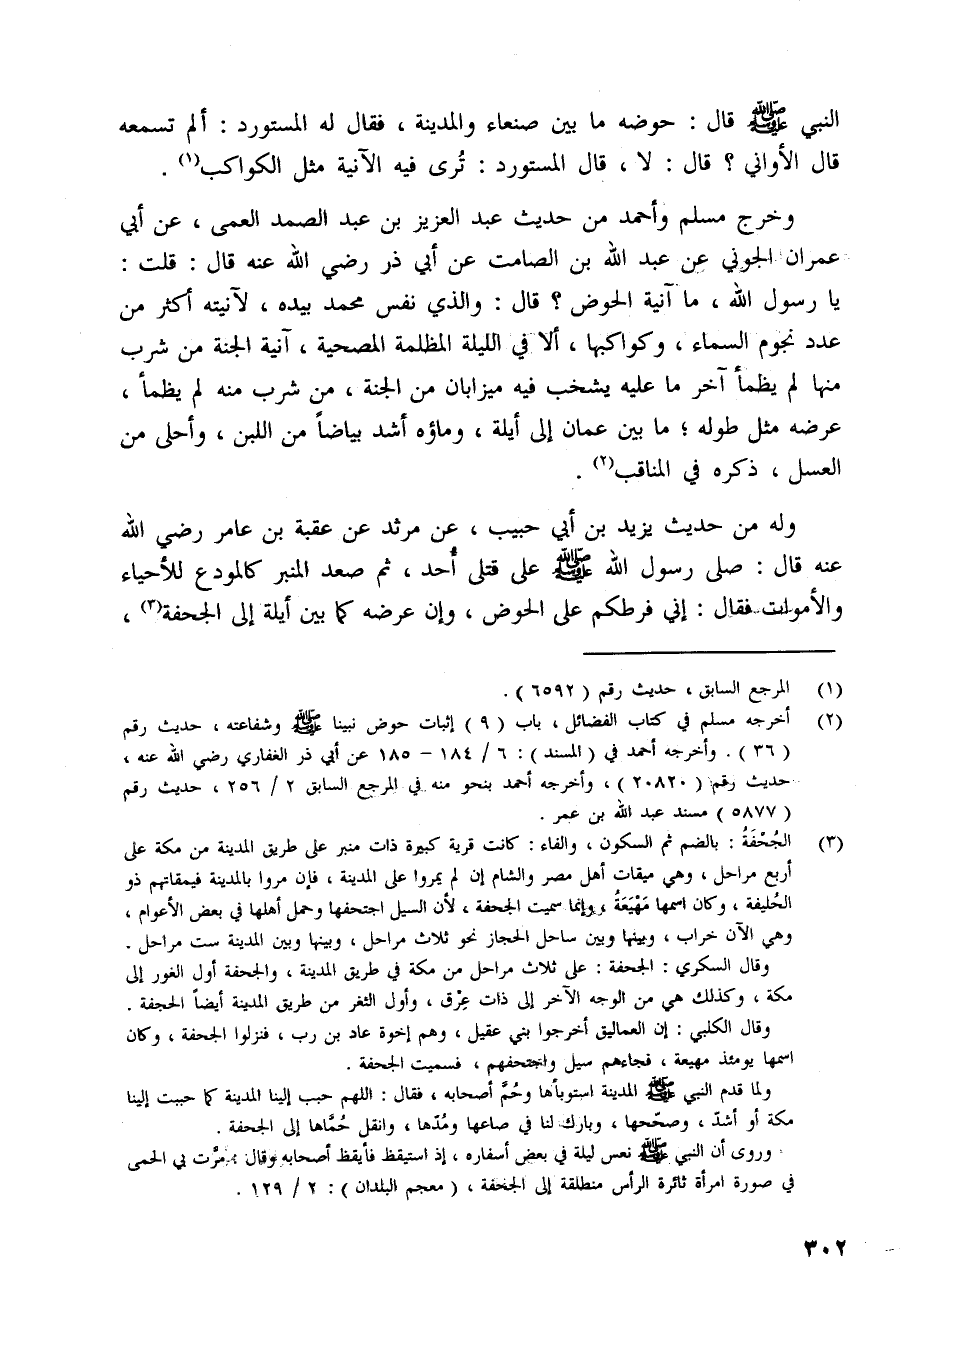 النبي ﷺ قال : حوضه ما بين صنعاء والمدينة ، فقال له المستورد : ألم تسمعه
قال الأواني ؟ قال : لا ، قال المستورد : تُرى فيه الآنية مثل الكواكب(١) .
وخرج مسلم وأحمد من حديث عبد العزيز بن عبد الصمد العمى ، عن أبي
عمران الجوني عن عبد الله بن الصامت عن أبي ذر رضي الله عنه قال : قلت :
يا رسول الله ، ما آنية الحوض ؟ قال : والذي نفس محمد بيده ، لآنيته أكثر من
عدد نجوم السماء ، وكواكبها ، ألا في الليلة المظلمة المصحية ، آنية الجنة من شرب
منها لم يظمأ آخر ما عليه يشخب فيه ميزابان من الجنة ، من شرب منه لم يظمأ ،
عرضه مثل طوله ؛ ما بين عمان إلى أيلة ، وماؤه أشد بياضاً من اللبن ، وأحلى من
العسل ، ذكره في المناقب(٢) .
وله من حديث يزيد بن أبي حبيب ، عن مرثد عن عقبة بن عامر رضي الله
عنه قال : صلى رسول الله ﷺ على قتلى أُحد ، ثم صعد المنبر كالمودع للأحياء
والأموات فقال : إني فرطكم على الحوض ، وإن عرضه كما بين أيلة إلى الجحفة(٣) ،
(١) المرجع السابق ، حديث رقم ( ٦٥٩٢ ) .
(٢) أخرجه مسلم في كتاب الفضائل ، باب ( ٩ ) إثبات حوض نبينا ﷺ وشفاعته ، حديث رقم
( ٣٦ ) . وأخرجه أحمد في ( المسند ) : ٦ / ١٨٤ - ١٨٥ عن أبي ذر الغفاري رضي الله عنه ،
حديث رقم ( ٢٠٨٢٠ ) ، وأخرجه أحمد بنحو منه في المرجع السابق ٢ / ٢٥٦ ، حديث رقم
( ٥٨٧٧ ) مسند عبد الله بن عمر .
(٣) الجُحْفَةُ : بالضم ثم السكون ، والفاء : كانت قرية كبيرة ذات منبر على طريق المدينة من مكة على
أربع مراحل ، وهي ميقات أهل مصر والشام إن لم يمروا على المدينة ، فإن مروا بالمدينة فيمقاتهم ذو
الحُليفة ، وكان اسمها مَهْيَعَةُ ، وإنما سميت الجحفة ، لأن السيل اجتحفها وحمل أهلها في بعض الأعوام ،
وهي الآن خراب ، وبينها وبين ساحل الحجاز نحو ثلاث مراحل ، وبينها وبين المدينة ست مراحل .
وقال السكري : الجحفة : على ثلاث مراحل من مكة في طريق المدينة ، والجحفة أول الغور إلى
مكة ، وكذلك هي من الوجه الآخر إلى ذات عِرْق ، وأول الثغر من طريق المدينة أيضاً الحجفة .
وقال الكلبي : إن العماليق أخرجوا بني عقيل ، وهم إخوة عاد بن رب ، فنزلوا الجحفة ، وكان
اسمها يومئذ مهيعة ، فجاءهم سيل واجتحفهم ، فسميت الجحفة .
ولما قدم النبي ﷺ المدينة استوبأها وحُمَّ أصحابه ، فقال : اللهم حبب إلينا المدينة كما حببت إلينا
مكة أو أشدّ ، وصحّحها ، وبارك لنا في صاعها ومُدّها ، وانقل حُمَّاها إلى الجحفة .
وروى أن النبي ﷺ نعس ليلة في بعض أسفاره ، إذ استيقظ فأيقظ أصحابه وقال : مرَّت بي الحمى
في صورة امرأة ثائرة الرأس منطلقة إلى الجحفة ، ( معجم البلدان ) : ٢ / ١٢٩ .
٣٠٢